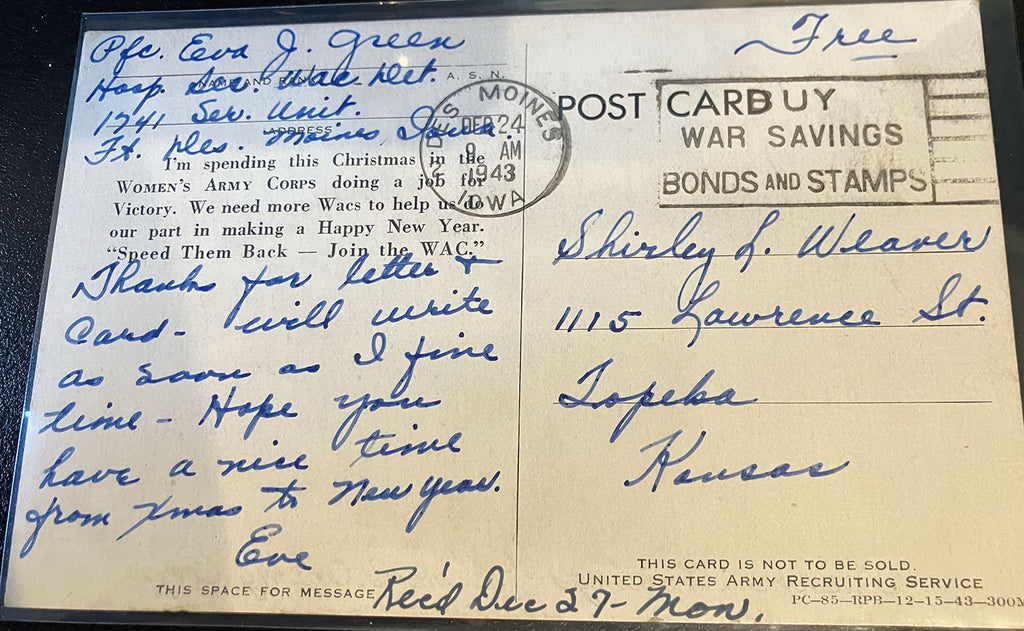 Pfc. Eva J. Green
NAME AND RANK A. S. N.
Hosp. Sec. Wac Det.
1741 Ser. Unit.
ADDRESS
Ft. Des. Moines, Iowa.
I'm spending this Christmas in the
Women's Army Corps doing a job for
Victory. We need more Wacs to help us do
our part in making a Happy New Year.
"Speed Them Back — Join the WAC."
Thanks for letter &
Card - will write
as soon as I fine
time - Hope you
have a nice time
from Xmas to New Year.
Eve
THIS SPACE FOR MESSAGE
Rec'd Dec 27 - Mon.
Free
DES MOINES
2
DEC 24
9 AM
1943
IOWA
POST CARD
BUY
WAR SAVINGS
BONDS AND STAMPS
Shirley L. Weaver
1115 Lawrence St.
Topeka
Kansas
THIS CARD IS NOT TO BE SOLD.
UNITED STATES ARMY RECRUITING SERVICE
PC—85—RPB—12-15-43—300M